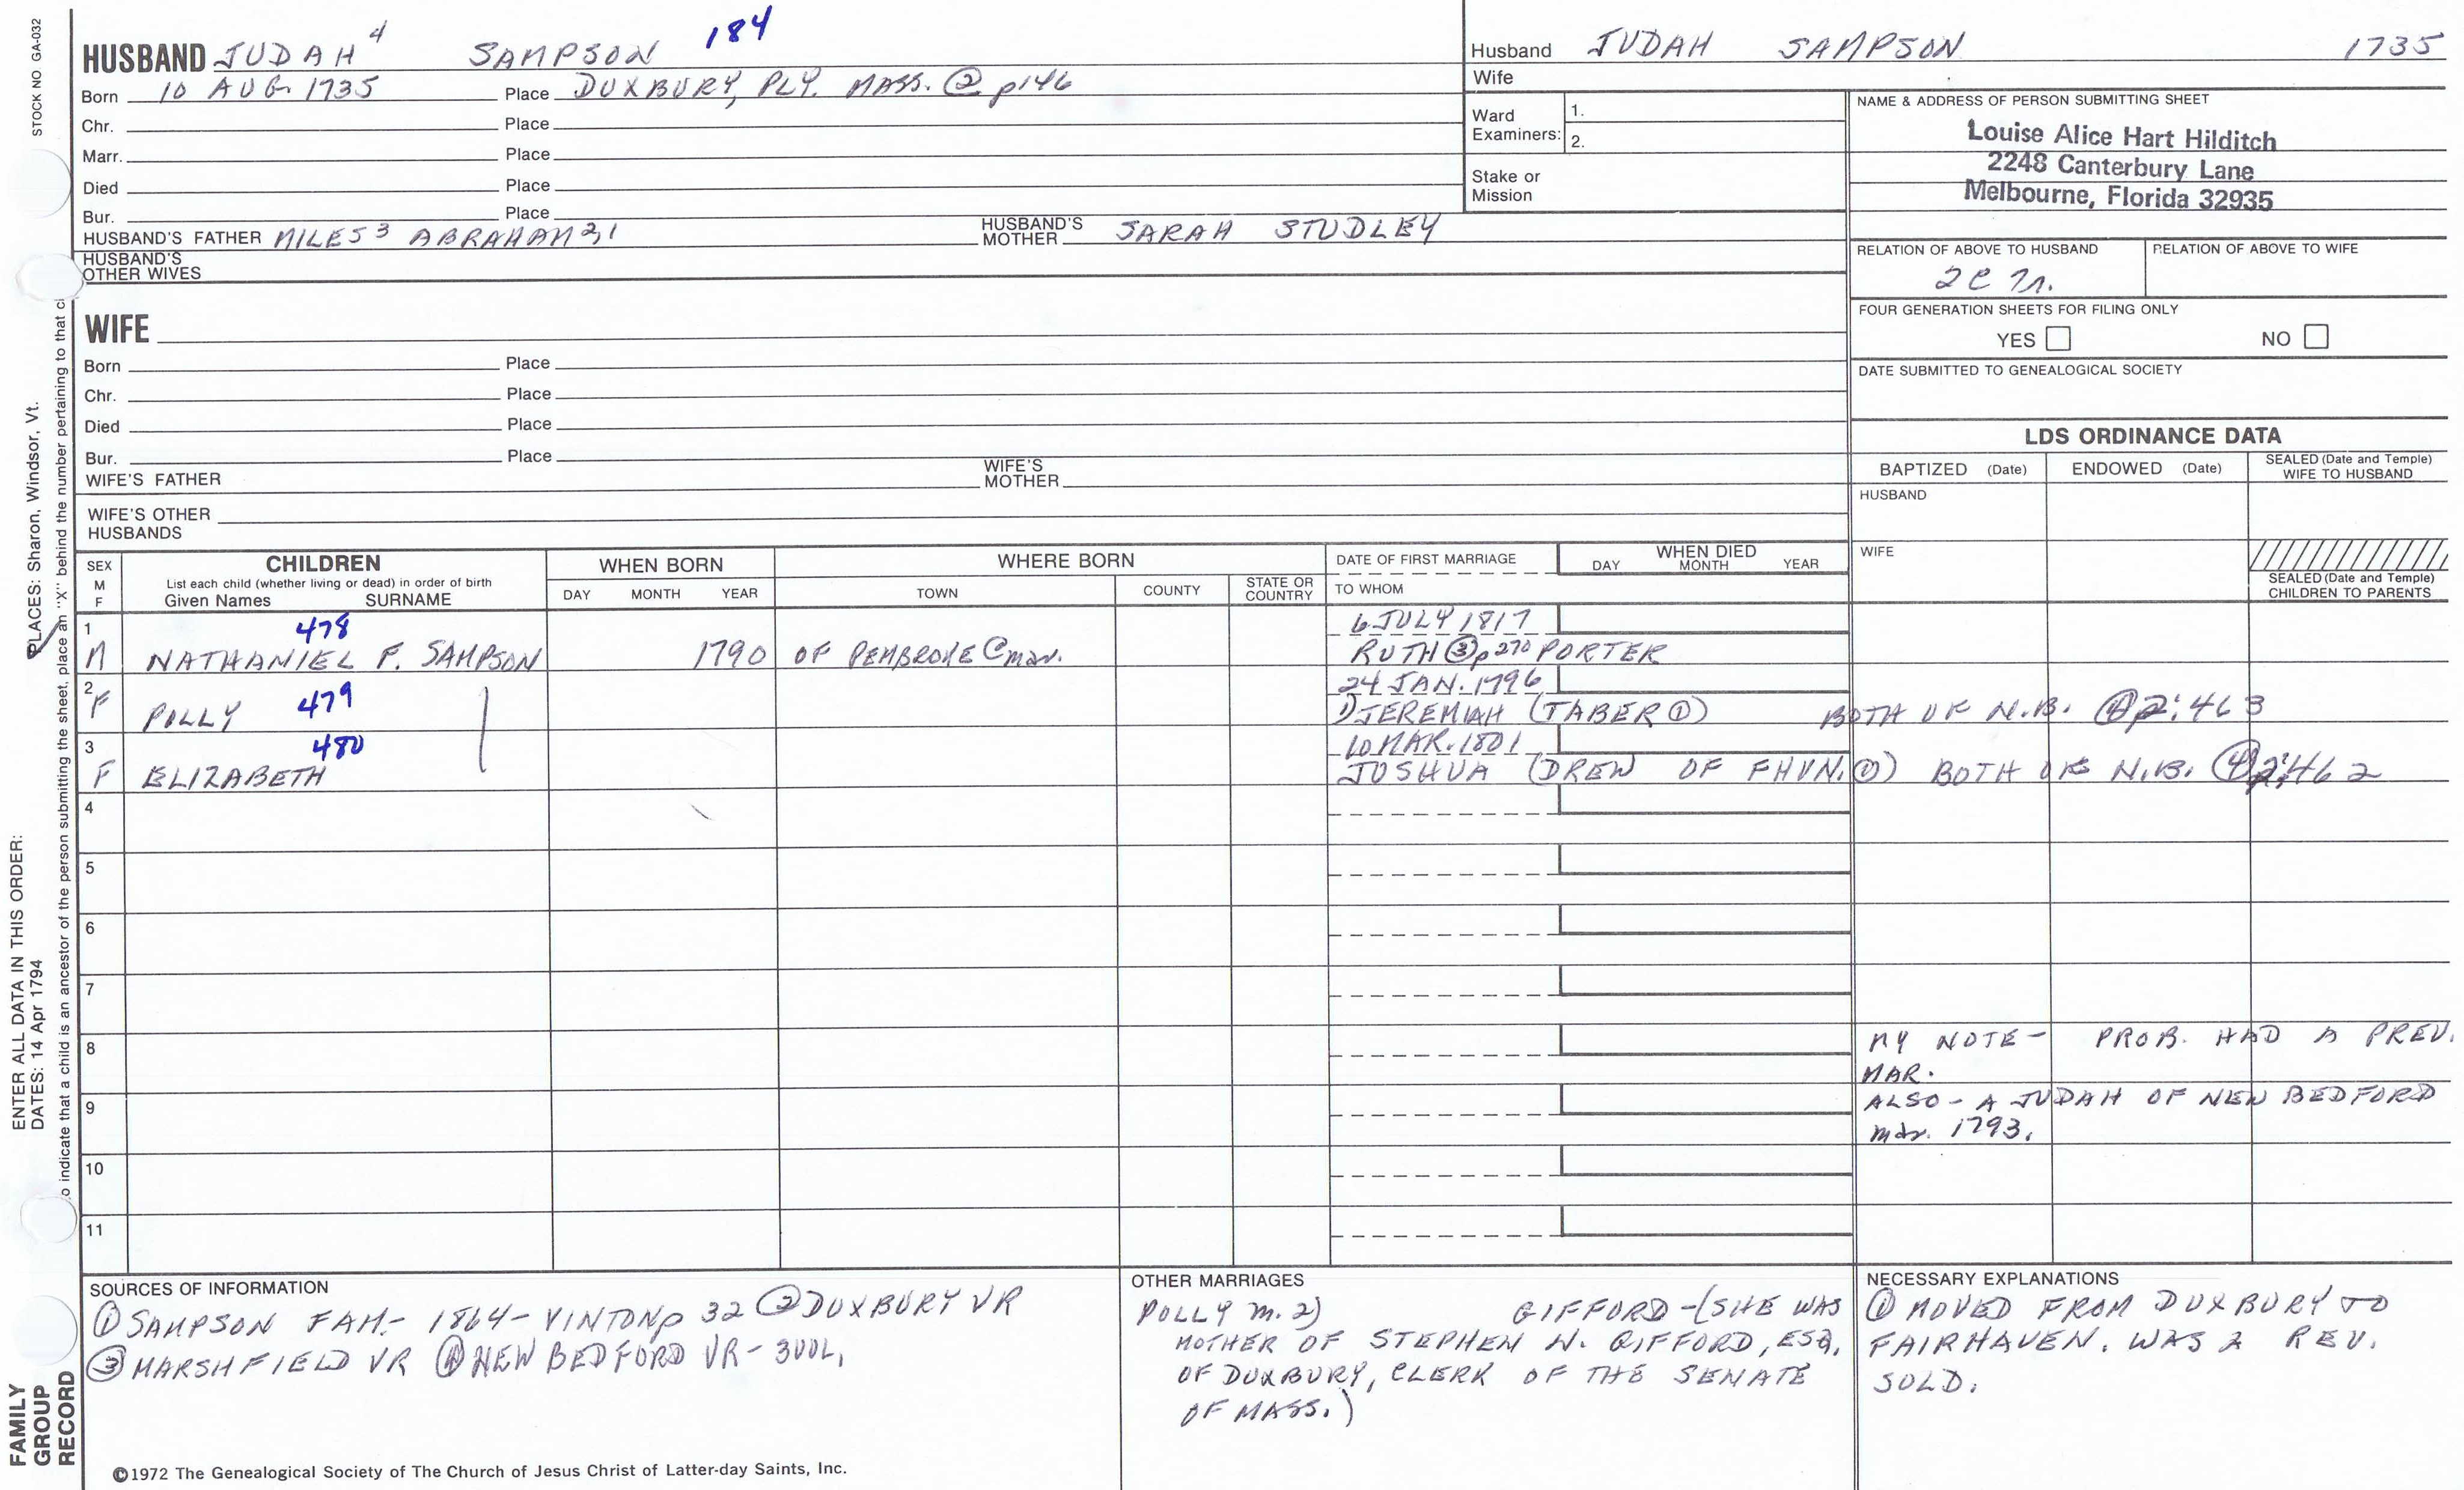 STOCK NO GA-032
HUSBAND JUDAH 4 SAMPSON 184
Born 10 AUG. 1735 Place DUXBURY, PLY. MASS. ② p146
Chr. Place
Marr. Place
Died Place
Bur. Place
HUSBAND'S FATHER MILES 3 ABRAHAM 2,1 HUSBAND'S MOTHER SARAH STUDLEY
HUSBAND'S OTHER WIVES
Husband JUDAH SAMPSON 1735
Wife
Ward Examiners: 1.
2.
Stake or Mission
NAME & ADDRESS OF PERSON SUBMITTING SHEET
Louise Alice Hart Hilditch
2248 Canterbury Lane
Melbourne, Florida 32935
RELATION OF ABOVE TO HUSBAND RELATION OF ABOVE TO WIFE
2C 7r.
FOUR GENERATION SHEETS FOR FILING ONLY
YES NO
DATE SUBMITTED TO GENEALOGICAL SOCIETY
WIFE
Born Place
Chr. Place
Died Place
Bur. Place
WIFE'S FATHER WIFE'S MOTHER
WIFE'S OTHER HUSBANDS
LDS ORDINANCE DATA
BAPTIZED (Date) ENDOWED (Date) SEALED (Date and Temple) WIFE TO HUSBAND
HUSBAND
WIFE
SEALED (Date and Temple) CHILDREN TO PARENTS
SEX M F
CHILDREN
List each child (whether living or dead) in order of birth
Given Names SURNAME
WHEN BORN
DAY MONTH YEAR
WHERE BORN
TOWN COUNTY STATE OR COUNTRY
DATE OF FIRST MARRIAGE
TO WHOM
WHEN DIED
DAY MONTH YEAR
1 478 6 JULY 1817
M NATHANIEL F. SAMPSON 1790 OF PEMBROKE @ mar. RUTH ③ p270 PORTER
2 479 24 JAN. 1796
F POLLY 1) JEREMIAH (TABER ①) BOTH OF N.B. ④ 2:463
3 480 10 MAR. 1801
F ELIZABETH JOSHUA (DREW OF FHVN. ①) BOTH OF N.B. ④ 2:462
4
5
6
7
8 MY NOTE - PROB. HAD A PREV.
MAR.
9 ALSO - A JUDAH OF NEW BEDFORD
mar. 1793.
10
11
SOURCES OF INFORMATION
① SAMPSON FAM. - 1864 - VINTON p 32 ② DUXBURY VR
③ MARSHFIELD VR ④ NEW BEDFORD VR - 3VOL.
OTHER MARRIAGES
POLLY m. 2) GIFFORD - (SHE WAS
MOTHER OF STEPHEN N. GIFFORD, ESQ.
OF DUXBURY, CLERK OF THE SENATE
OF MASS.)
NECESSARY EXPLANATIONS
① MOVED FROM DUXBURY TO
FAIRHAVEN. WAS A REV.
SOLD.
©1972 The Genealogical Society of The Church of Jesus Christ of Latter-day Saints, Inc.
FAMILY GROUP RECORD
ENTER ALL DATA IN THIS ORDER:
DATES: 14 Apr 1794
PLACES: Sharon, Windsor, Vt.
o indicate that a child is an ancestor of the person submitting the sheet, place an "X" behind the number pertaining to that c